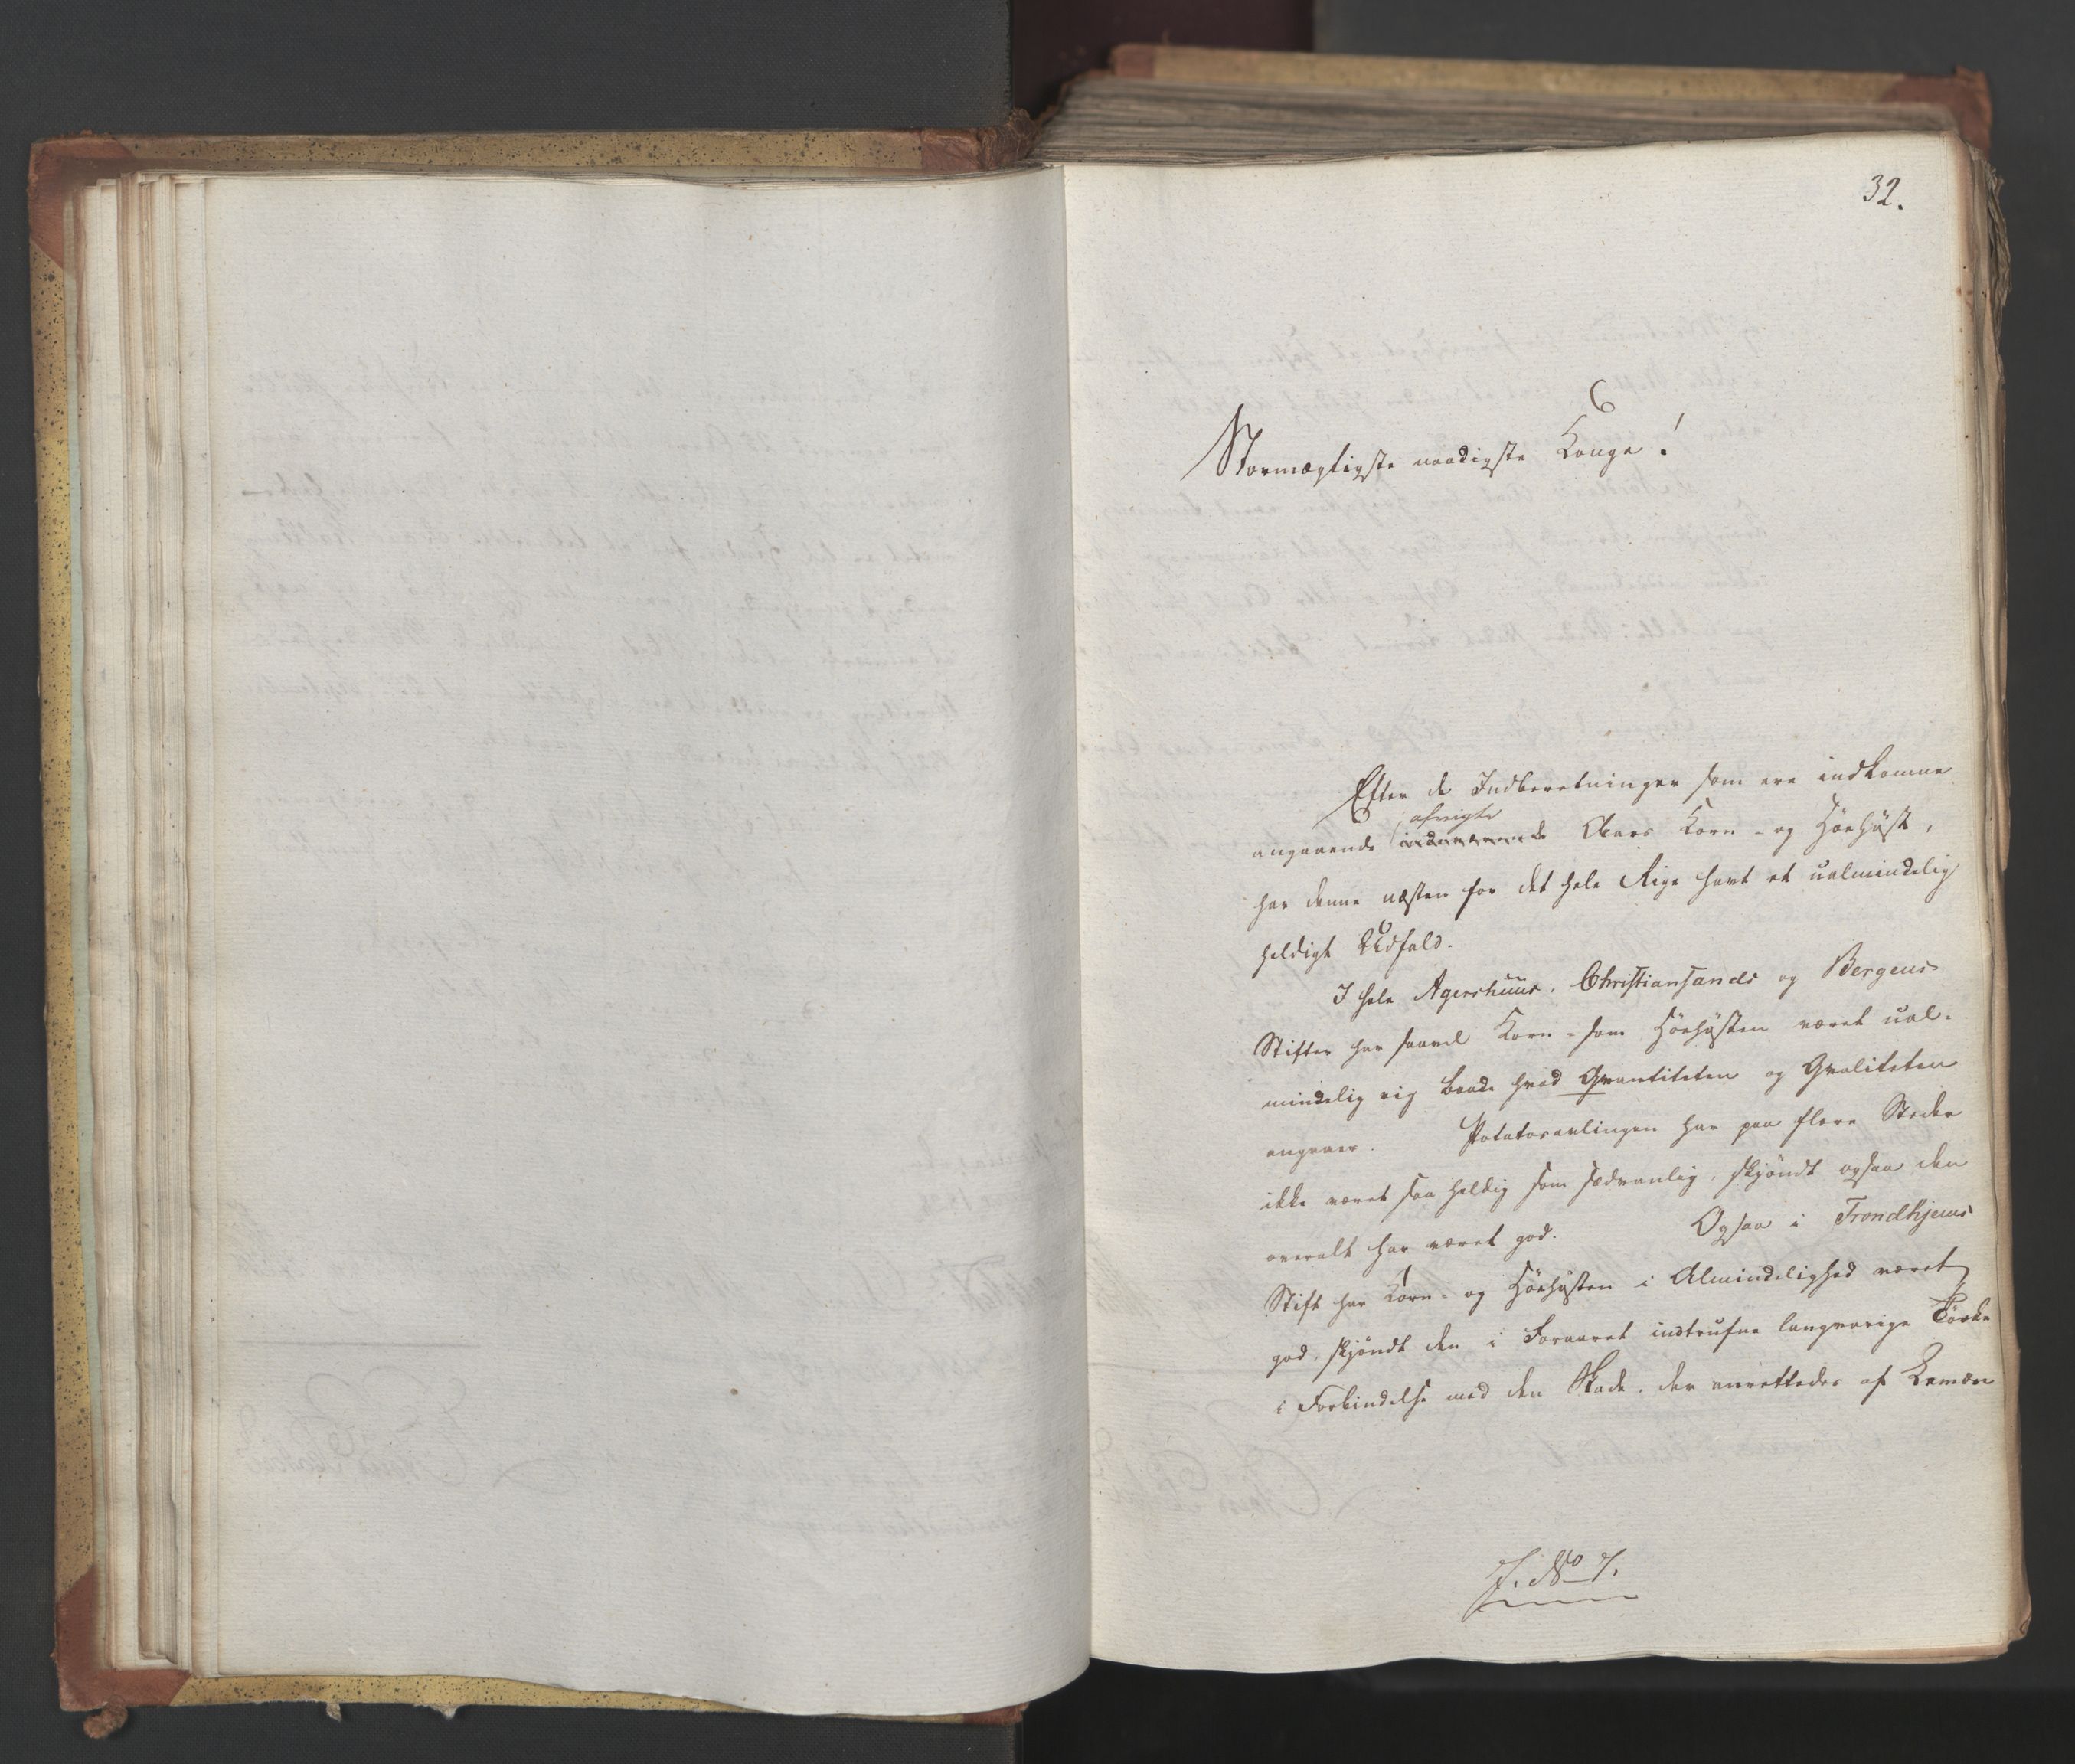 32.
6
Stormægtigste naadigste Konge!
Efter de Indberetninger som ere indkomne
afvigte
angaaende indeværende Aars Korn- og Höehöst,
har denne næsten for det hele Rige havt et ualmindelig
heldigt Udfald.
I hele Agershuus, Christiansands og Bergens
Stifter har saavel Korn- som Höehösten været ual-
mindelig rig baade hvad Qvantiteten og Qvaliteten
angaaer. Potatosavlingen har paa flere Steder
ikke været saa heldig som sædvanlig, skjöndt ogsaa den
overalt har været god. Ogsaa i Trondhjems
Stift har Korn- og Höehösten i Almindelighed været
god, skjöndt den i Foraaret indtrufne langvarige Törke
i Forbindelse med den Skade, der anrettedes af Lemæn
J. No 7.